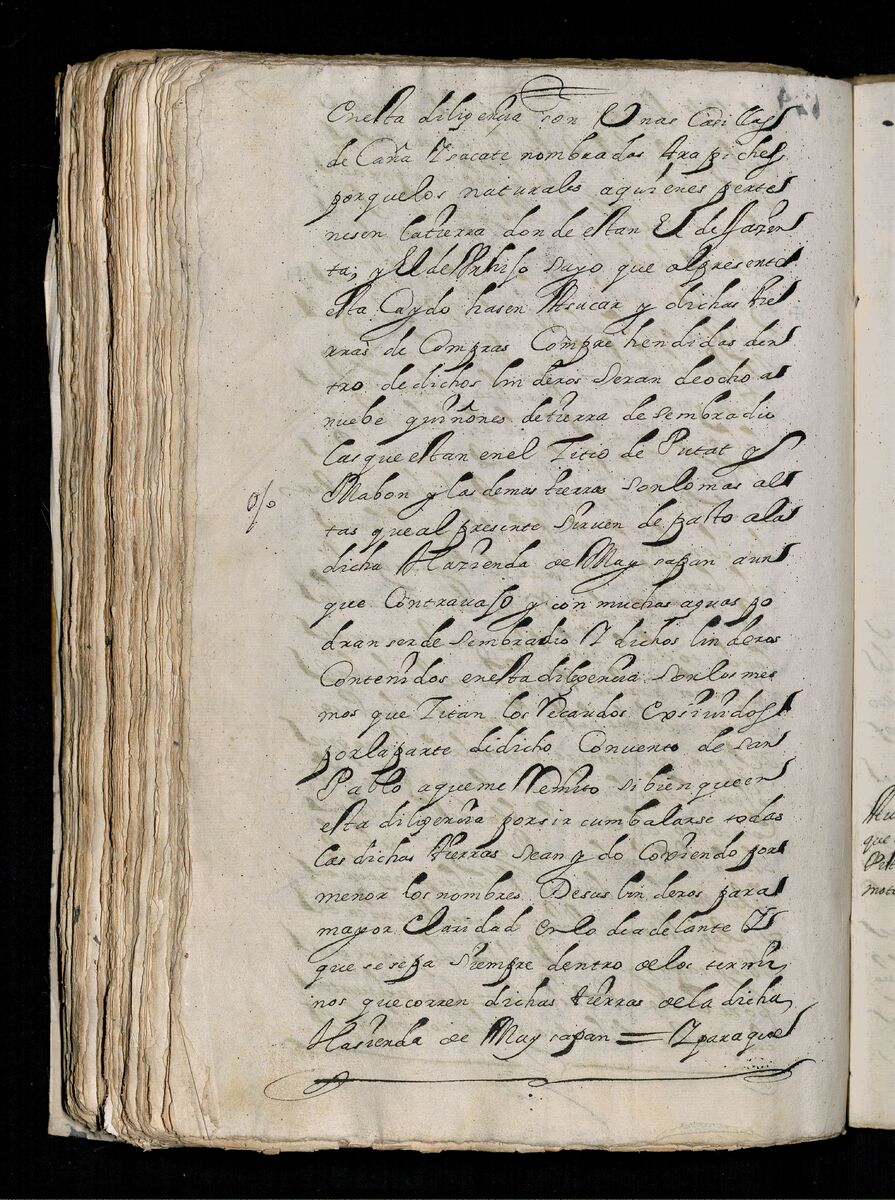 en esta diligencia son Unas Casillas
de Caña Y sacate nombrados trapiches
porque los naturales aquienes perte
nesen la tierra donde estan El de
ta, y El de Un hijo suyo que al presente
esta Caydo hasen Asucar y dichas tie
rras de Compras Compre hendidas den
tro de dichos linderos seran de ocho a
nuebe quiñones de tierra de sembradio
las que estan en el Titio de Putat y
Mabon y las demas tierras son lomas al
tas que al presente siruen de pasto a la
dicha Hazienda de May sapan aun
que Contrauajo y con muchas aguas po
dran ser de sembradio Y dichos linderos
Contenidos en esta diligencia son los mes
mos que Titan los Recaudos Exsiuidos
por la parte di dicho Conuento de san
Pablo aque me Remito si bien que en
esta diligencia por sir cumbalarse todas
las dichas tierras sean ydo Coxiendo por
menor los nombres De sus linderos para
mayor Claridad en lo de adelante Y
que se sepa siempre dentro de los termi
nos que corren dichas tierras de la dicha
Hasienda de May sapan = Y para que
%